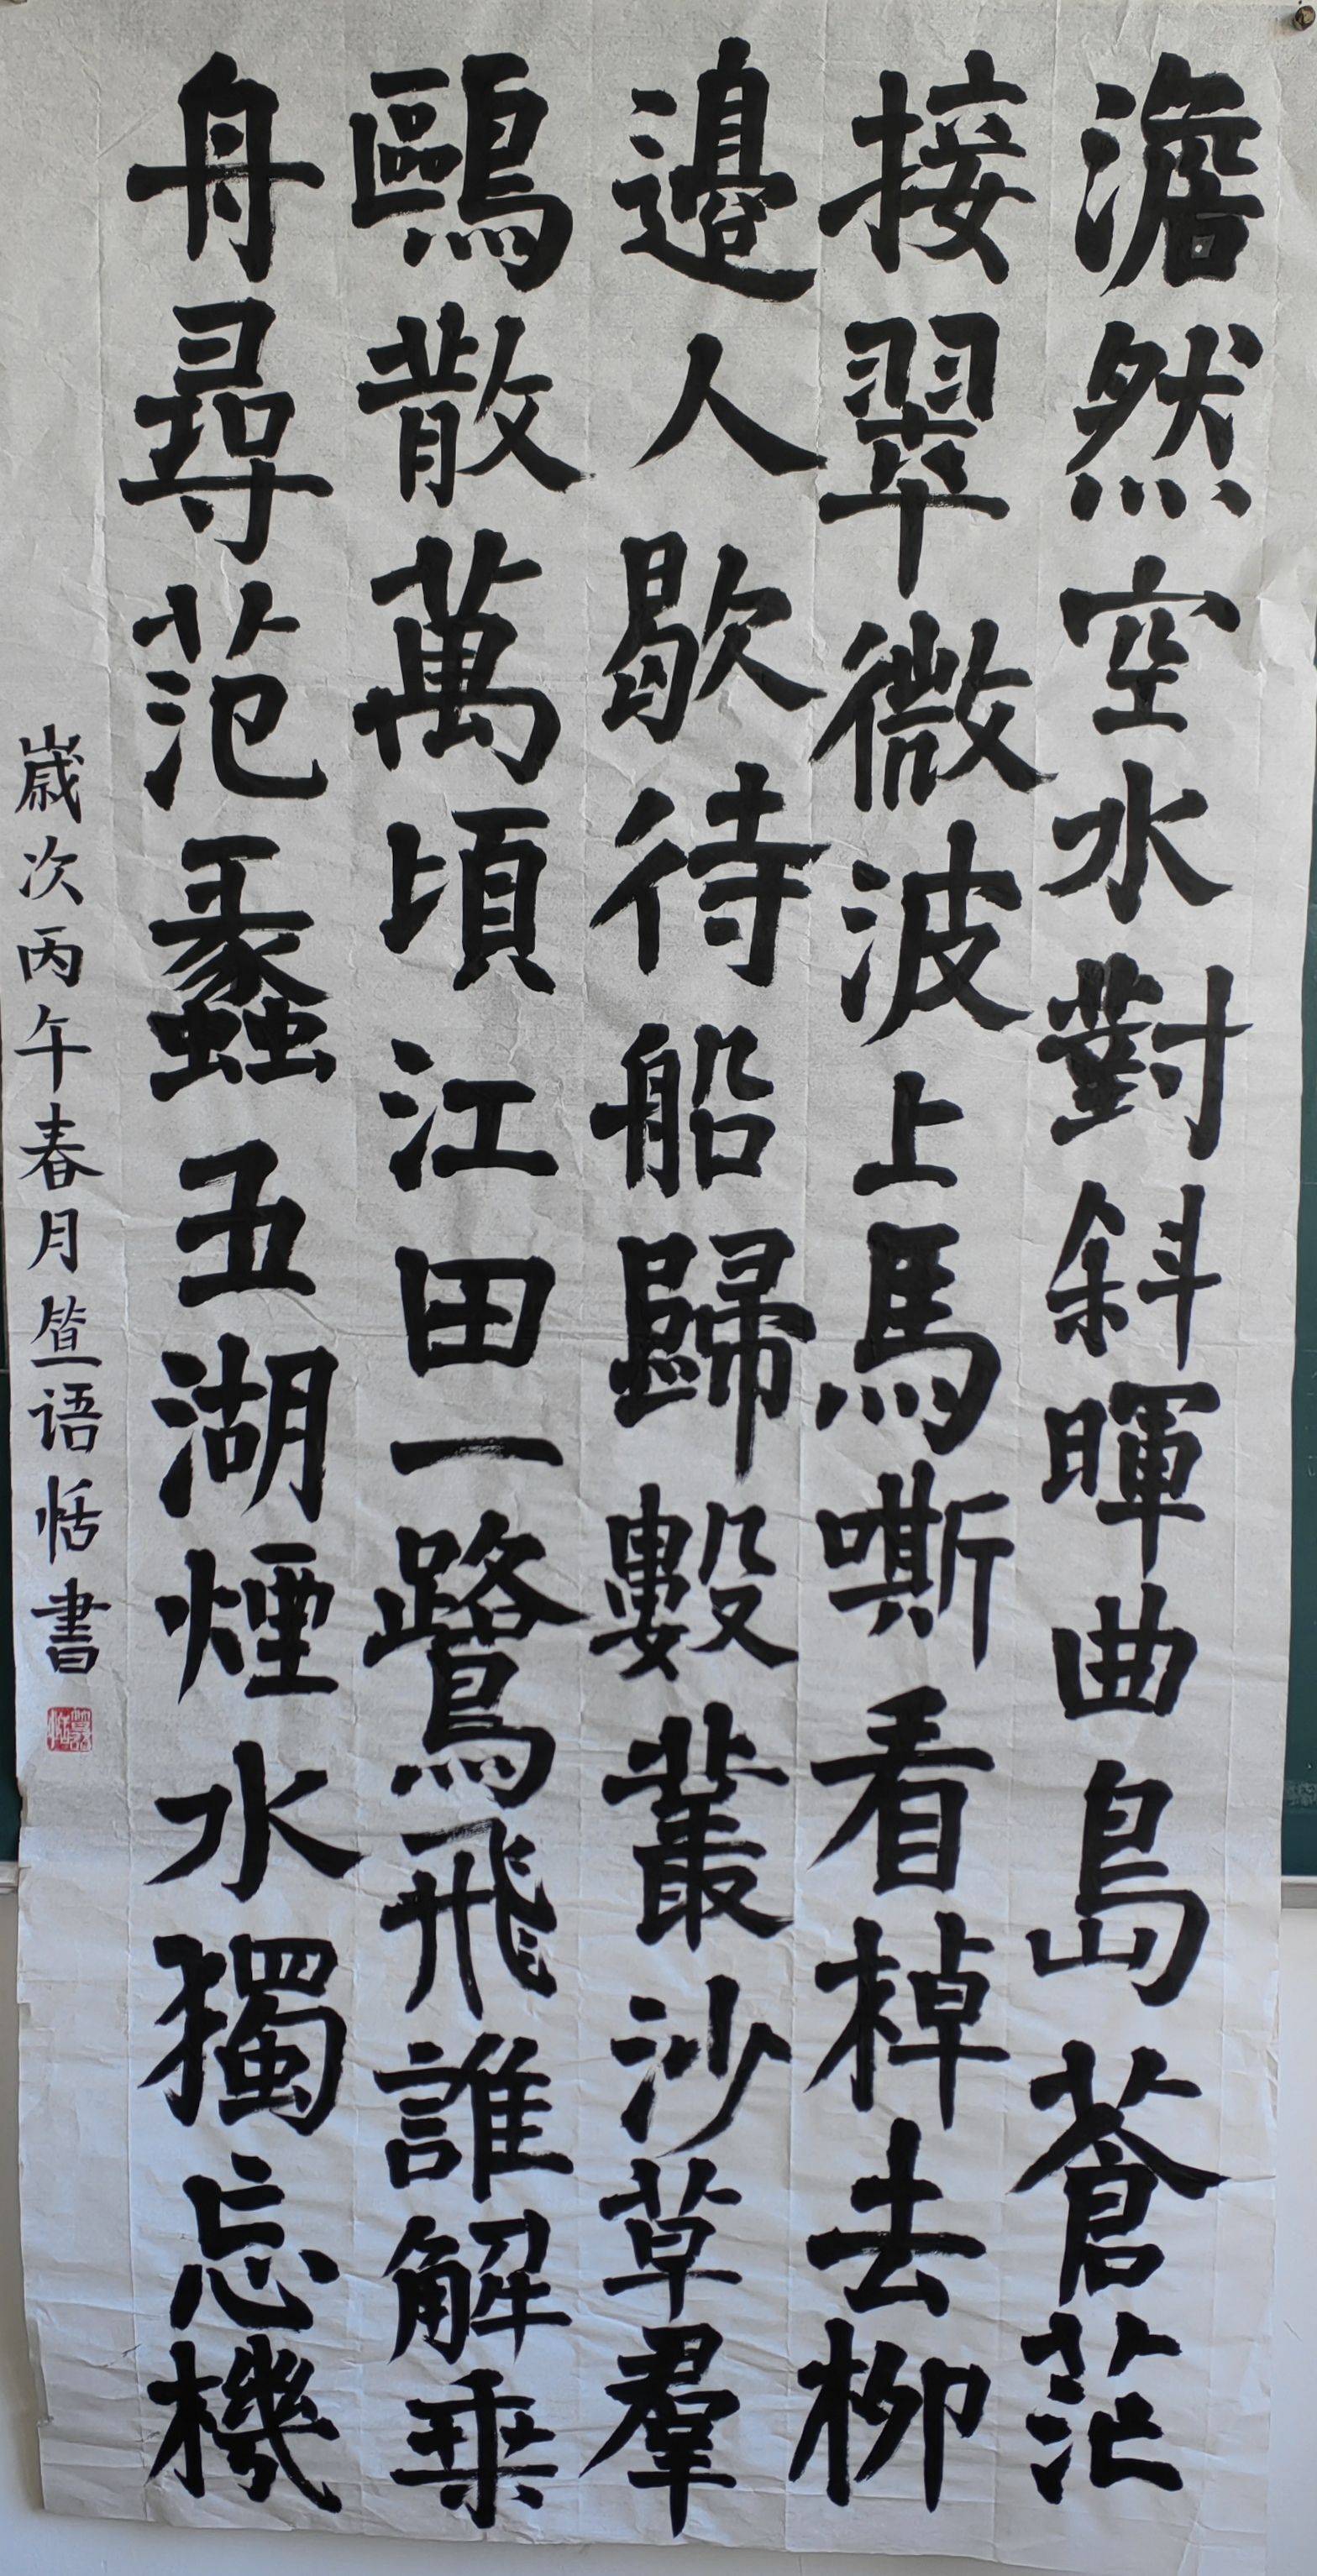 澹然空水對斜暉曲島蒼茫
接翠微波上馬嘶看棹去柳
邊人歇待船歸數叢沙草羣
鷗散萬頃江田一鷺飛誰解乗
舟尋范蠡五湖煙水獨忘機
歲次丙午春月笪语恬書